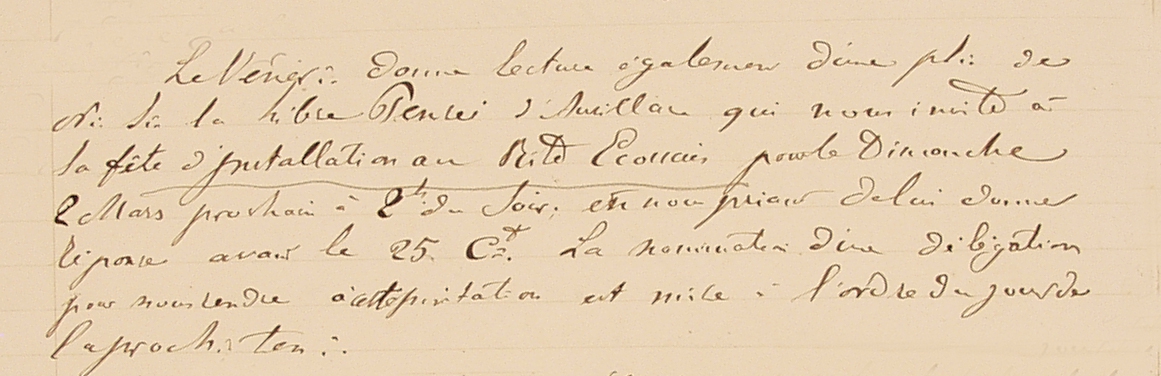 Le Vén∴ donne lecture également d'une pl∴ de
la Libre Pensée d'Aurillac qui nous invite à
la fête d'Installation au Rite Ecossais pour le Dimanche
2 Mars prochain à 2h du Soir, en nous priant de lui donner
réponse avant le 25 Ct. La nomination d'une délégation
pour nous rendre à cette invitation est mise à l'ordre du jour de
la proch∴ ten∴